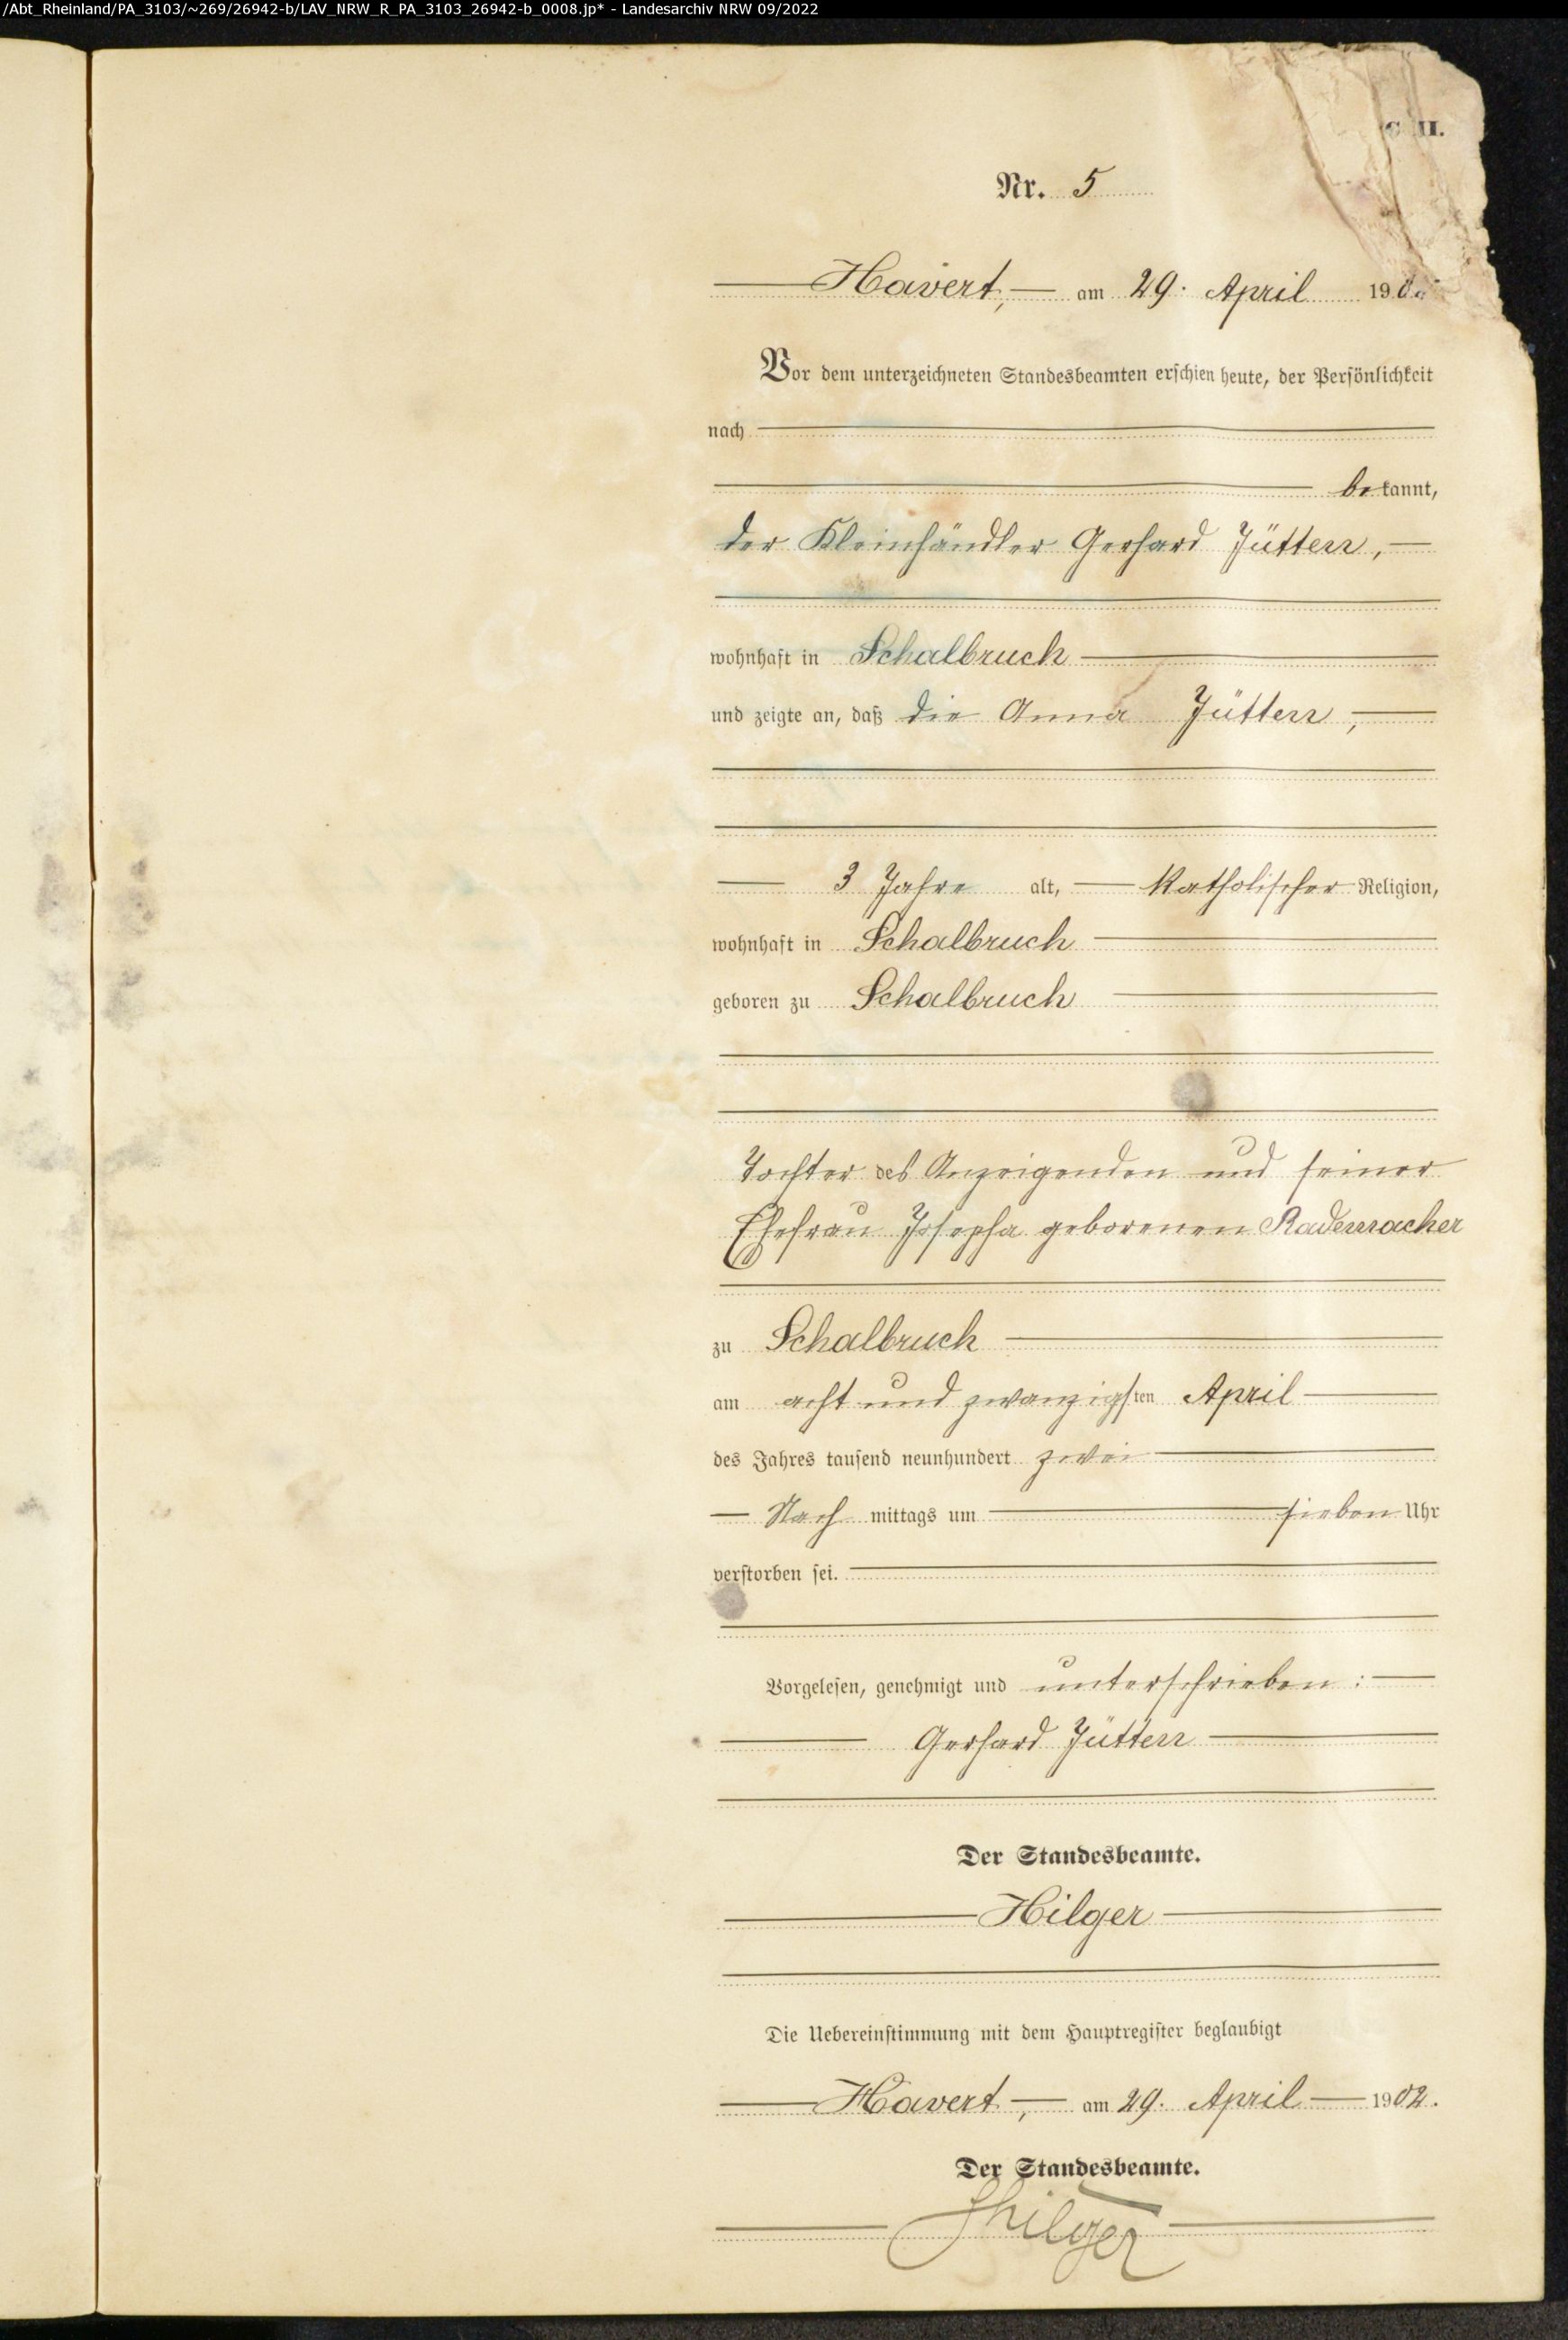 /Abt_Rheinland/PA_3103/~269/26942-b/LAV_NRW_R_PA_3103_26942-b_0008.jp* - Landesarchiv NRW 09/2022
C II.
Nr. 5
Havert, am 29. April 190
Vor dem unterzeichneten Standesbeamten erschien heute, der Persönlichkeit
nach
bekannt,
der Kleinhändler Gerhard Jütten,
wohnhaft in Schalbruch
und zeigte an, daß die Anna Jütten,
3 Jahre alt, katholischer Religion,
wohnhaft in Schalbruch
geboren zu Schalbruch
Tochter des Anzeigenden und seiner
Ehefrau Josepha geborenen Rademacher
zu Schalbruch
am acht und zwanzigsten April
des Jahres tausend neunhundert zwei
Nach mittags um sieben Uhr
verstorben sei.
Vorgelesen, genehmigt und unterschrieben:
Gerhard Jütten
Der Standesbeamte.
Hilger
Die Uebereinstimmung mit dem Hauptregister beglaubigt
Havert, am 29. April 1902.
Der Standesbeamte.
Hilger